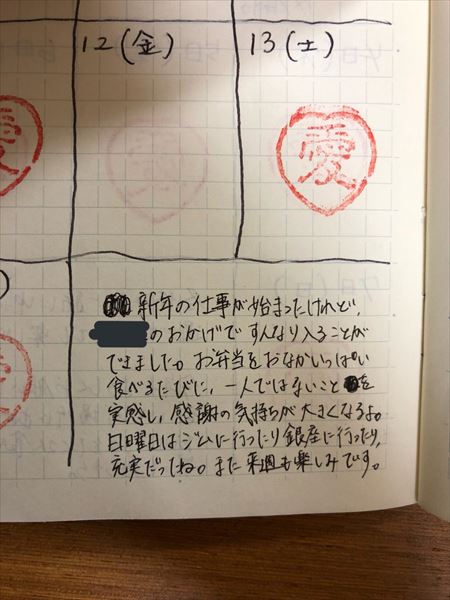 12(金)
13(土)
愛
愛
新年の仕事が始まったけれど、
のおかげですんなり入ることが
できました。お弁当をおなかいっぱい
食べるたびに、一人ではないことを
実感し、感謝の気持ちが大きくなるよ。
日曜日はジムに行ったり銀座に行ったり、
充実だってね。また来週も楽しみです。